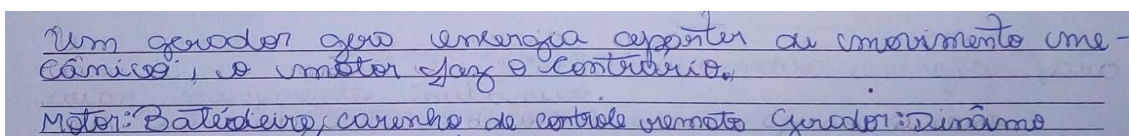 Um gerador gera energia apartir de movimento me-
cânico, o motor faz o contrário.
Motor: Batedeira, carinho de controle remoto Gerador: Dinâmo